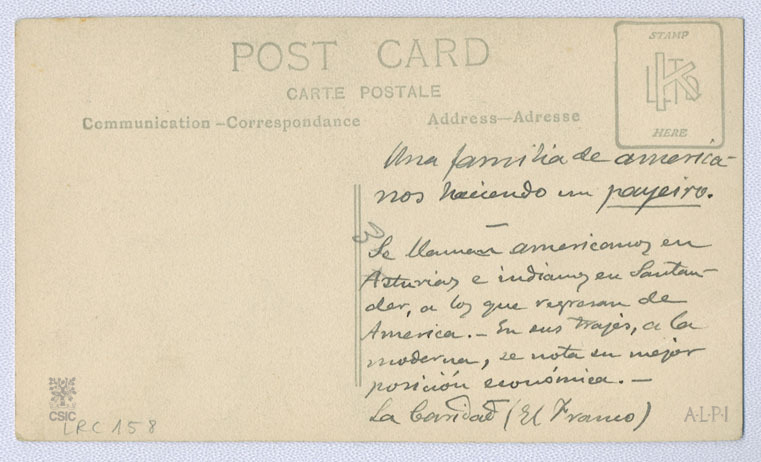 POST CARD
CARTE POSTALE
Communication–Correspondance
Address—Adresse
STAMP
LTD
HERE
Una familia de america-
nos haciendo un payeiro.
Se llaman americanos en
Asturias e indianos en Santan-
der, a los que regresan de
America. — En sus trajes, a la
moderna, se nota su mejor
posición económica. —
La Caridad (El Franco)
A·L·P·I
CSIC
LRC 158